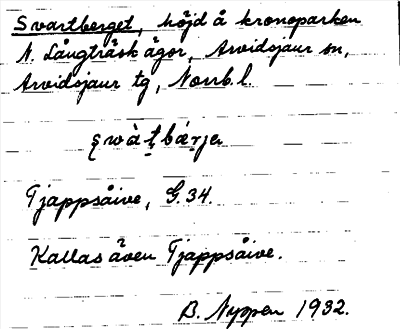 Svartberget, höjd å kronoparken
N. Långträsk ägor, Arvidsjaur sn,
Arvidsjaur tg, Norrb. l.
şwàt̠bæ̀rjen
Tjappsåive, G. 34.
Kallas även Tjappsåive.
B. Nyppen 1932.